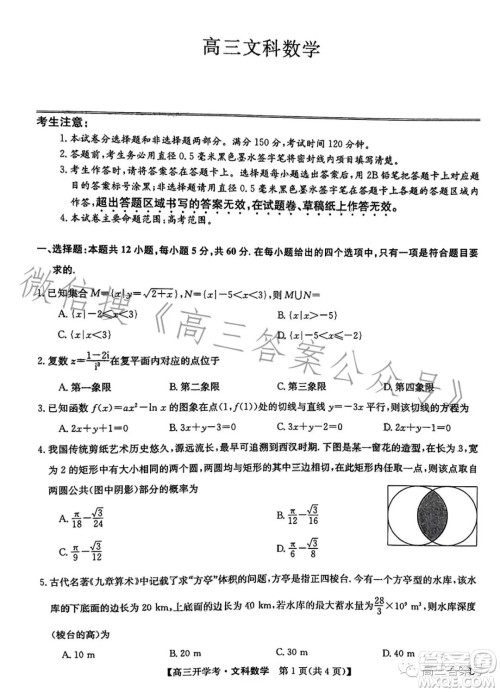 高三文科数学
考生注意:
1.本试卷分选择题和非选择题两部分。满分150分,考试时间120分钟。
2.答题前,考生务必用直径0.5毫米黑色墨水签字笔将密封线内项目填写清楚。
3.考生作答时,请将答案答在答题卡上。选择题每小题选出答案后,用2B铅笔把答题卡上对应题
目的答案标号涂黑;非选择题请用直径0.5毫米黑色墨水签字笔在答题卡上各题的答题区域内
作答,超出答题区域书写的答案无效,在试题卷、草稿纸上作答无效。
4.本试卷主要命题范围:高考范围。
一、选择题:本题共12小题,每小题5分,共60分.在每小题给出的四个选项中,只有一项是符合题目要
求的.
1.已知集合M={x|y=√(2+x)},N={x|-5<x<3},则M∪N=
A.{x|-2≤x<3} B.{x|-5<x<3}
C.{x|x<3} D.{x|x>-5}
2.复数z=(1-2i)/i³在复平面内对应的点位于
A.第一象限 B.第二象限 C.第三象限 D.第四象限
3.已知函数f(x)=ax²-ln x的图象在点(1,f(1))处的切线与直线y=-3x平行,则该切线的方程为
A.2x+y+1=0 B.2x+y-1=0 C.3x+y-2=0 D.3x+y+4=0
4.我国传统剪纸艺术历史悠久,源远流长,最早可追溯到西汉时期.下图是某一窗花的造型,在长为3,宽
为2的矩形中有大小相同的两个圆,两圆均与矩形的其中三边相切,在此图内任取一点,则该点取自
两圆公共(图中阴影)部分的概率为
A.π/18-√3/24 B.π/12-√3/16
C.π/9-√3/12 D.π/6-√3/8
5.古代名著《九章算术》中记载了求“方亭”体积的问题,方亭是指正四棱台.今有一个方亭型的水库,该水
库的下底面边长为20 km,上底面边长为40 km,若水库的最大蓄水量为28/3×10⁹ m³,则水库深度
(棱台的高)为
A.10 m B.20 m C.30 m D.40 m
【高三开学考·文科数学 第1页(共4页)】
微信搜《高三答案公众号》